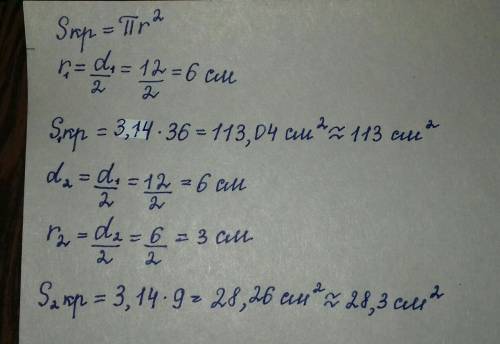 Sкр = πr²
r₁ = d₁/2 = 12/2 = 6 см
S₁кр = 3,14 · 36 = 113,04 см² ≈ 113 см²
d₂ = d₁/2 = 12/2 = 6 см
r₂ = d₂/2 = 6/2 = 3 см
S₂кр = 3,14 · 9 = 28,26 см² ≈ 28,3 см²